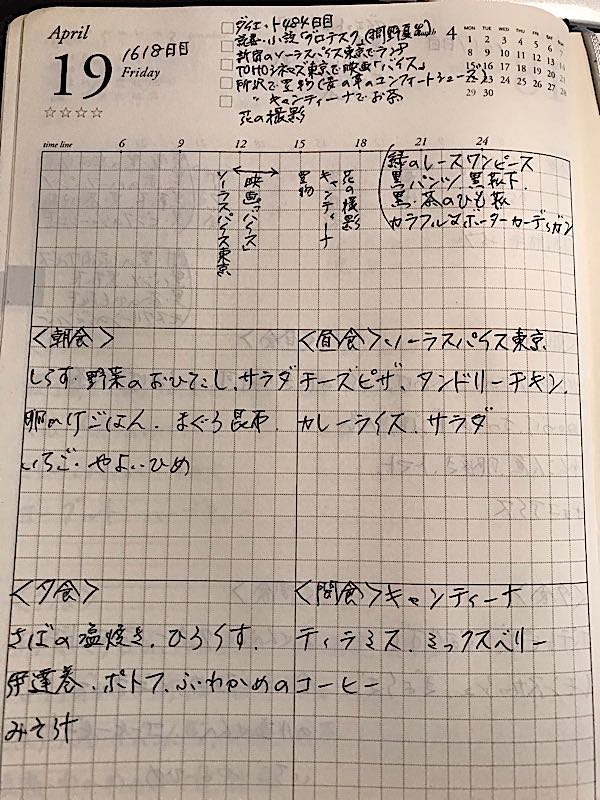 April
19
1618日目
Friday
☆☆☆☆
ダイエット484日目
読書・小説「グロテスク」(桐野夏生)
新宿のソーラスパイス東京でランチ
TOHOシネマズ東京で映画「バイス」
所沢で買物(茶の革のコンフィートシューズ)
〃 キャンティーナでお茶
花の撮影
4
MON TUE WED THU FRI SAT SUN
1 2 3 4 5 6 7
8 9 10 11 12 13 14
15 16 17 18 19 20 21
22 23 24 25 26 27 28
29 30
time line 6 9 12 15 18 21 24
ソーラスパイス東京
映画「バイス」
買物
キャンティーナ
花の撮影
緑のレースワンピース
黒パンツ 黒靴下
黒・茶のひも靴
カラフルなボーターカーディガン
<朝食>
しらす・野菜のおひたし、サラダ
ごはん、まぐろ昆布
いちご・やよいひめ
<昼食>ソーラスパイス東京
チーズピザ、タンドリーチキン、
カレーライス、サラダ
<夕食>
さばの塩焼き、ひろうす、
伊達巻、ポトフ、ふわかめの
みそ汁
<間食>キャンティーナ
ティラミス、ミックスベリー
コーヒー